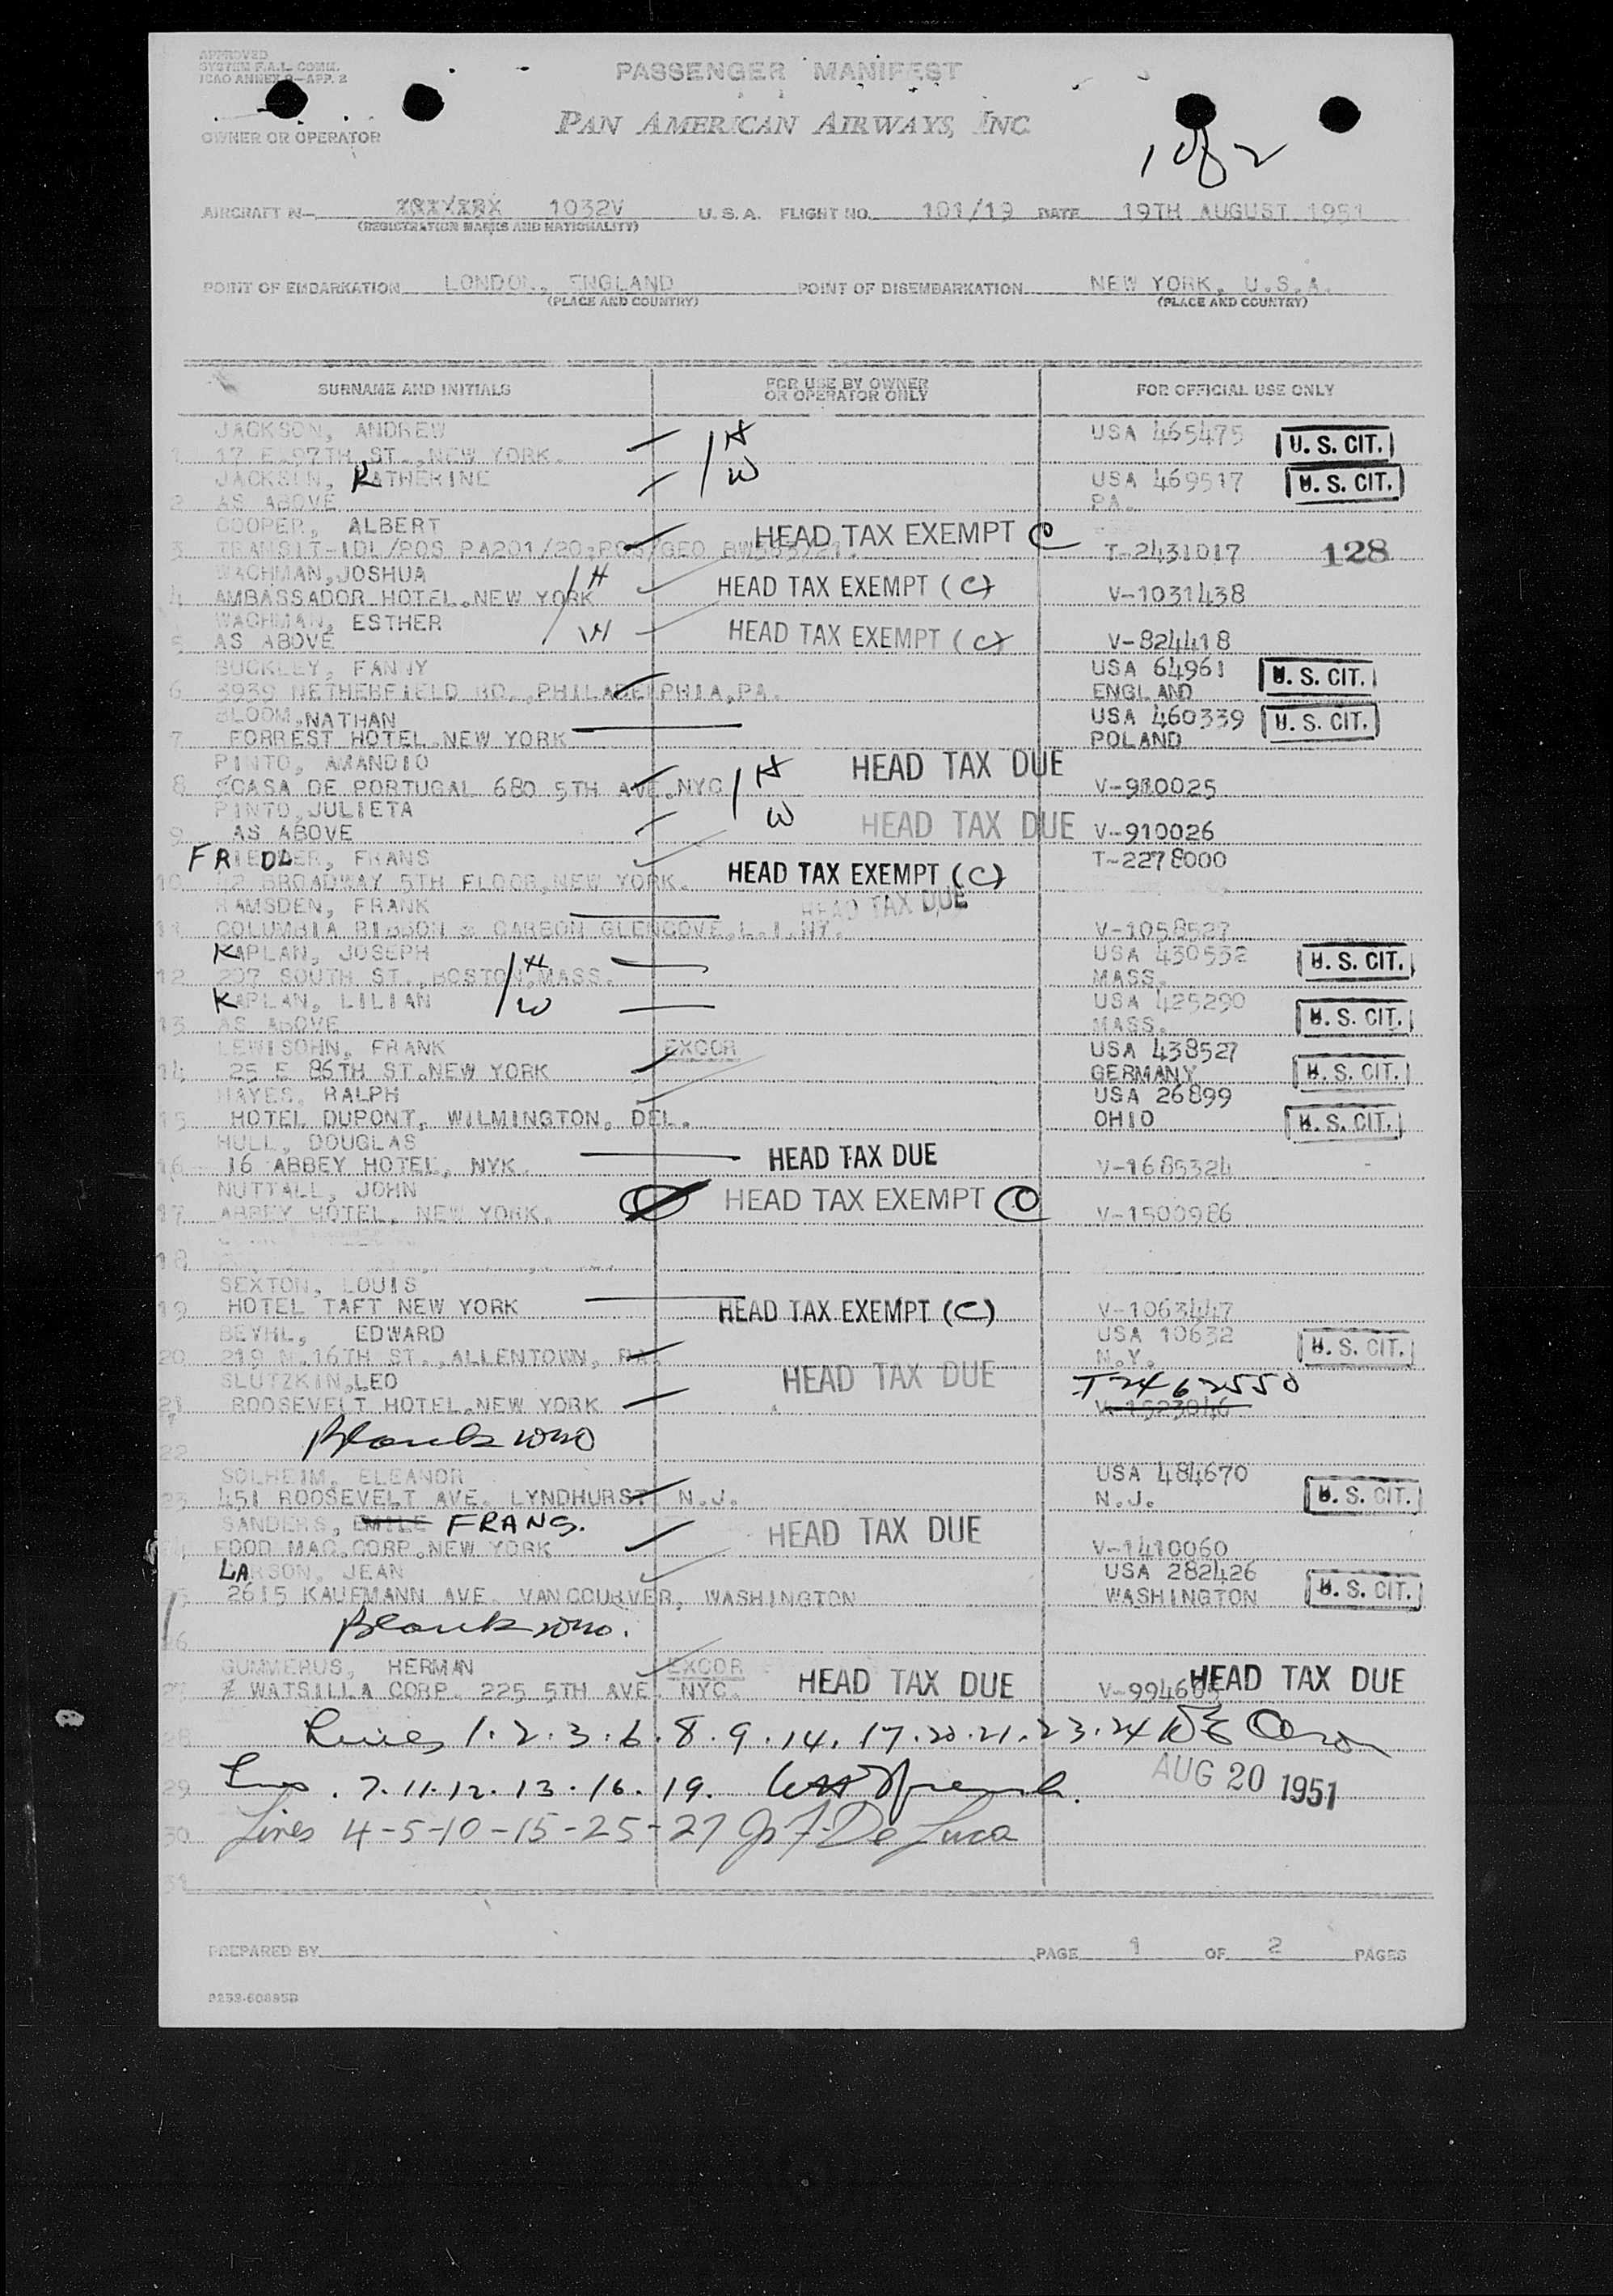 APPROVED
SYSTEM F.A.L. COMM.
ICAO ANNEX 9-APP. 2
PASSENGER MANIFEST
OWNER OR OPERATOR
PAN AMERICAN AIRWAYS, INC.
1 of 2
AIRCRAFT N- 1032V U.S.A. FLIGHT NO. 101/19 DATE 19TH AUGUST 1951
(REGISTRATION MARKS AND NATIONALITY)
POINT OF EMBARKATION LONDON, ENGLAND POINT OF DISEMBARKATION NEW YORK, U.S.A.
(PLACE AND COUNTRY) (PLACE AND COUNTRY)
SURNAME AND INITIALS FOR USE BY OWNER OR OPERATOR ONLY FOR OFFICIAL USE ONLY
JACKSON, ANDREW H USA 465475 U. S. CIT.
1 17 E 97TH ST., NEW YORK.
JACKSON, KATHERINE W USA 469517 U. S. CIT.
2 AS ABOVE PA.
COOPER, ALBERT HEAD TAX EXEMPT C
3 TRANSIT-IDL/POS PA201/20;POS/GEO T-2431017 128
WACHMAN,JOSHUA H HEAD TAX EXEMPT (C)
4 AMBASSADOR HOTEL.NEW YORK V-1031438
WACHMAN, ESTHER W HEAD TAX EXEMPT (C)
5 AS ABOVE V-824418
BUCKLEY, FANNY USA 64961 U. S. CIT.
6 3939 NETHERFIELD RD.,PHILADELPHIA,PA. ENGLAND
BLOOM.NATHAN USA 460339 U. S. CIT.
7 FORREST HOTEL.NEW YORK POLAND
PINTO, AMANDIO H HEAD TAX DUE
8 CASA DE PORTUGAL 680 5TH AVE.NYC V-910025
PINTO,JULIETA W HEAD TAX DUE V-910026
9 AS ABOVE
FRIEDDER, FRANS HEAD TAX EXEMPT (C) T-2278000
10 42 BROADWAY 5TH FLOOR,NEW YORK.
RAMSDEN, FRANK HEAD TAX DUE
11 COLUMBIA RIBBON & CARBON GLENCOVE,L.I.NY. V-1058527
KAPLAN, JOSEPH H USA 430532 U. S. CIT.
12 207 SOUTH ST.,BOSTON,MASS. MASS.
KAPLAN, LILIAN W USA 425290 U. S. CIT.
13 AS ABOVE MASS.
LEWISOHN, FRANK EXCOR USA 438527
14 25 E 86TH ST.NEW YORK GERMANY U. S. CIT.
HAYES, RALPH USA 26899
15 HOTEL DUPONT, WILMINGTON, DEL. OHIO U. S. CIT.
HULL, DOUGLAS
16 16 ABBEY HOTEL, NYK. HEAD TAX DUE V-1685324
NUTTALL, JOHN HEAD TAX EXEMPT C
17 ABBEY HOTEL, NEW YORK. V-1500986
18
SEXTON, LOUIS
19 HOTEL TAFT NEW YORK HEAD TAX EXEMPT (C) V-1063447
BEYHL, EDWARD USA 10632 U. S. CIT.
20 219 N.16TH ST.,ALLENTOWN, PA. N.Y.
SLUTZKIN,LEO HEAD TAX DUE T2462550
21 ROOSEVELT HOTEL.NEW YORK V-1523046
22 Blank
SOLHEIM, ELEANOR USA 484670
23 451 ROOSEVELT AVE. LYNDHURST, N.J. N.J. U. S. CIT.
SANDERS, EMILE FRANS. HEAD TAX DUE
24 FOOD MAC.CORP.NEW YORK V-1410060
LARSON, JEAN USA 282426
25 2615 KAUFMANN AVE. VANCOURVER, WASHINGTON WASHINGTON U. S. CIT.
26 Blank
GUMMERUS, HERMAN EXCOR
27 WATSILLA CORP. 225 5TH AVE. NYC. HEAD TAX DUE V-99460 HEAD TAX DUE
28 Lines 1.2.3.6.8.9.14.17.20.21.23.24
29 Lines 7.11.12.13.16.19. AUG 20 1951
30 Lines 4-5-10-15-25-27 De Luca
31
PREPARED BY PAGE 1 OF 2 PAGES